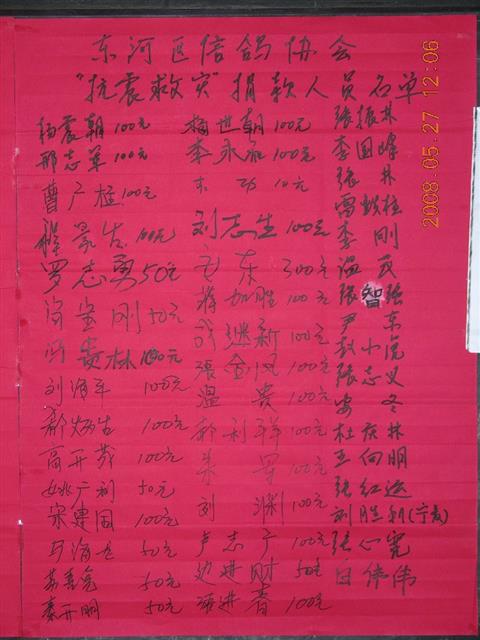 东河区信鸽协会
"抗震救灾"捐款人员名单
杨震朝100元
邢志军100元
曹广柱100元
100元
罗志勇50元
刚50元
冯贵林100元
刘海军 100元
郝炳吉 100元
高开菊 100元
姚广利 50元
宋建国 100元
马海 50元
50元
秦开明 50元
杨世朝100元
李永和100元
10元
刘志生100元
东 300元
蒋加胜 100元
成继新 100元
张金凤 100元
温贵 100元
郝利祥100元
朱军 100元
刘渊 100元
卢志广 100元
边进财 50元
海进青 100元
张振林
李国峰
张林
雷铁柱
李刚
温
张智强
尹东
彭小虎
张志义
安冬
杜庆林
王向明
张红运
刘胜利(宁夏)
张心宽
白伟伟
2008.05.27 12:06